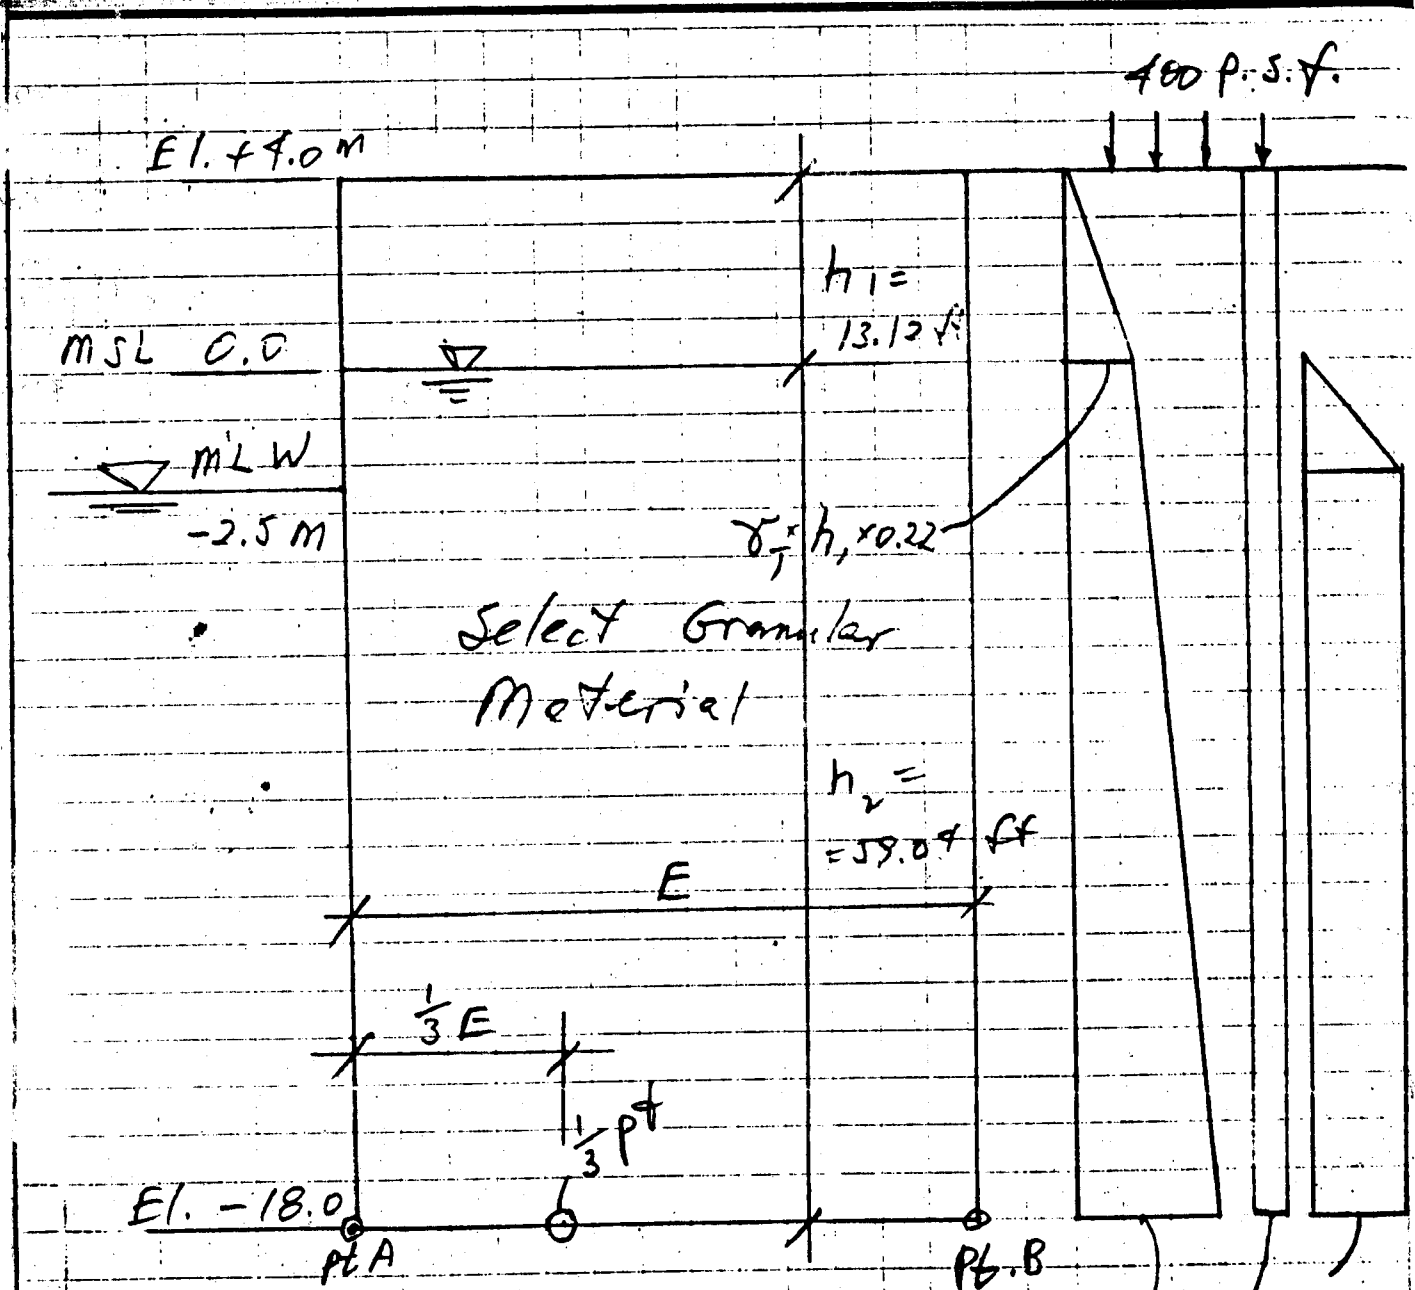 400 p.s.f.
El. +4.0 m
h1 =
13.12 ft
MSL 0.0
MLW
-2.5 m
γT × h1 × 0.22
Select Granular
Material
h2 =
= 59.04 ft
E
1/3 E
1/3 pt
El. -18.0
pt A
Pt. B